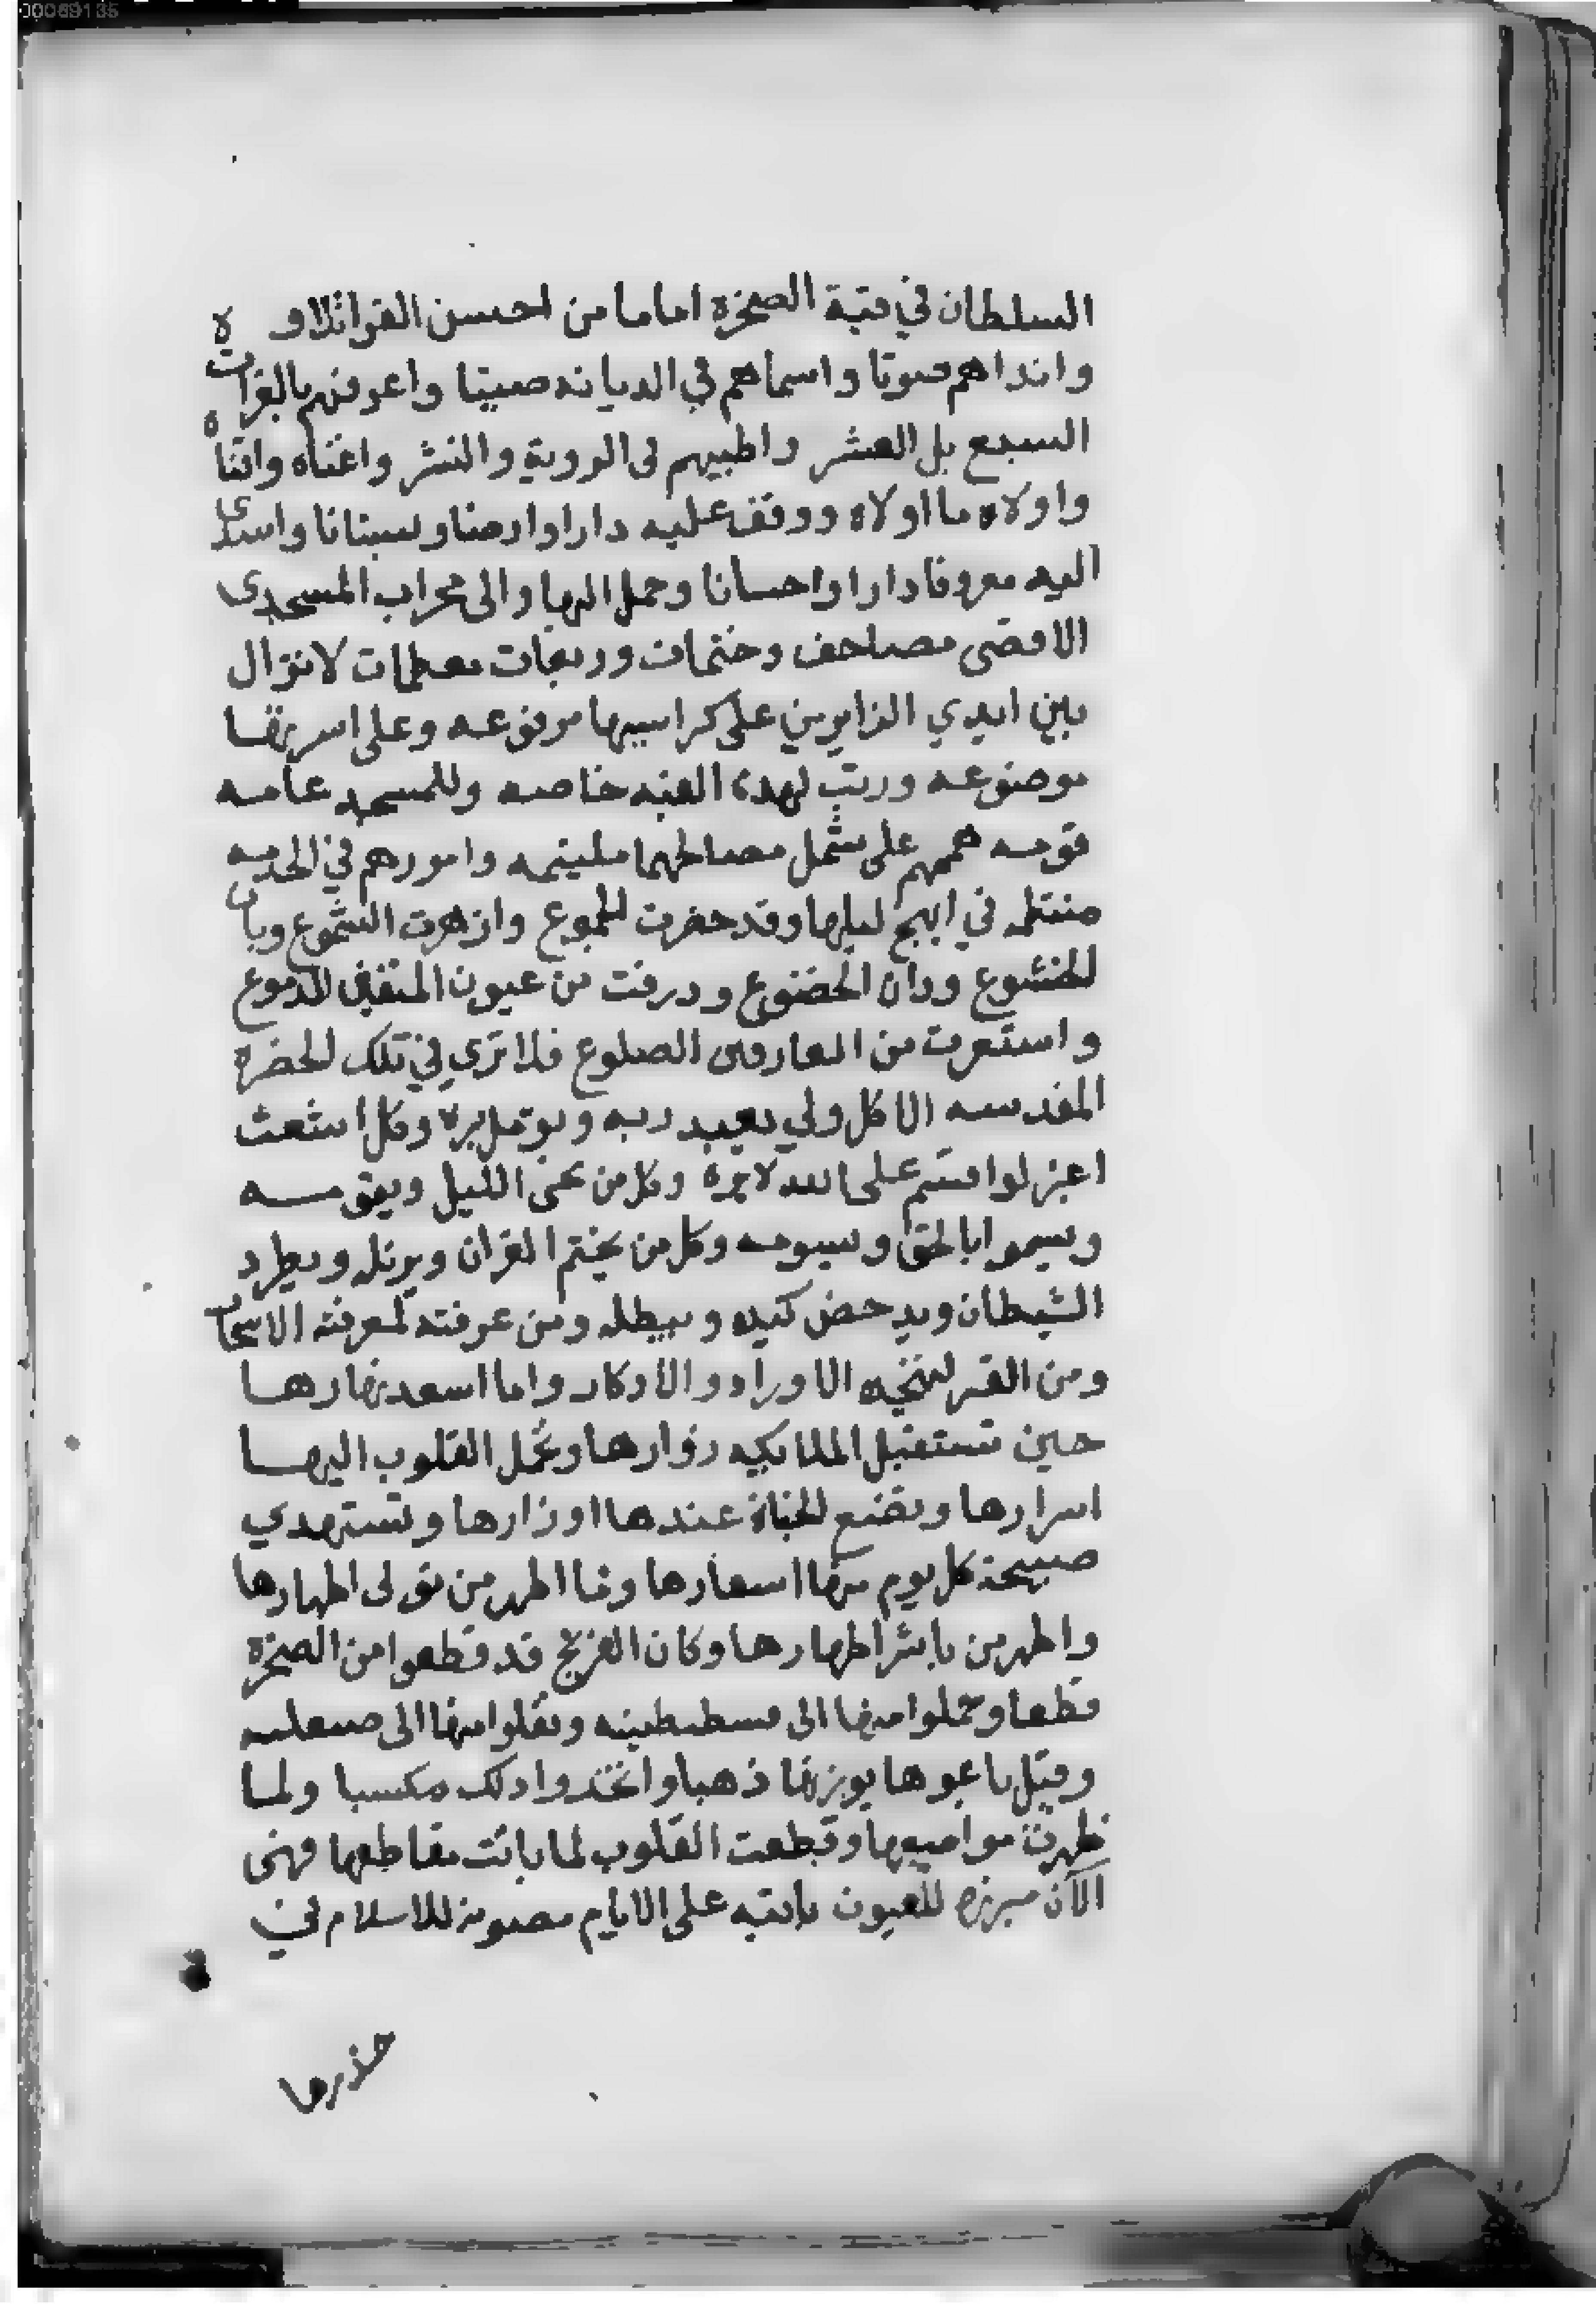 00069135
السلطان في قبة الصخرة اماما من احسن القرا تلاوة
وانداهم صوتا واسماهم في الديانه صيتا واعرفهم بالقرات
السبع بل العشر واطيبهم في الروية والنشر واغناه واقناه
واولاه ما اولاه ووقف عليه دارا وارضا وبستانا واسدى
اليه معروفا دارا واحسانا وحمل اليها والى محراب المسجد
الاقصى مصاحف وختمات وربعات معظمات لا تزال
بين ايدي الزايرين على كراسيها مرفوعه وعلى اسرتها
موضوعه ورتب لهده القبه خاصه وللمسجد عامه
قومه هممهم على شمل مصالحهما ملتيمه وامورهم في الخدمه
منتظمه في ابهج ليلها وقد حضرت الجموع وازهرت الشموع وبان
الخشوع ودان الخضوع ودرفت من عيون المتقين الدموع
واستعرت من العارفين الضلوع فلا تري في تلك الحضره
المقدسه الا كل ولي يعبد ربه ويومل بره وكل اشعث
اغبر لو اقسم على الله لابره وكل من يحى الليل ويقومه
ويسموا بالحق ويسومه وكل من يختم القران ويرتله ويطرد
الشيطان ويدحض كيده ويبطله ومن عرفته لمعرفته الاسحار
ومن الاوراد والادكار واما اسعد نهارها
حين تستقبل الملايكه زوارها وتحمل القلوب اليها
اسرارها وتضع الجناة عندها اوزارها وتستهدي
صبيحة كل يوم منها اسفارها وما اطهر من تولى اطهارها
واطهر من باشر اطهارها وكان الفرنج قد قطعوا من الصخرة
قطعا وحملوا منها الى قسطنطينه ونقلوا منها الى صقليه
وقيل باعوها بوزنها ذهبا واتخدوا دلك مكسبا ولما
ظهرت مواضعها وقطعت القلوب لما بانت مقاطعها فهى
الآن مبرزه للعيون باقيه على الايام مصونة للاسلام في
خدرها